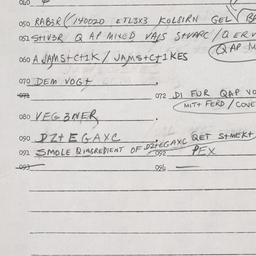 040
050 RABER (140020 ETL3X3 KOLBIRN GEL
051 StIVBR Q AP MIXED VAJS StVARC / QERV
QAP M
060 A JAMS+C+1K / JAMS+C+1KES
070 DEM VOG+
071
072 DI FUR QAP VO
MIT+ FERD / COVE
080 VEG3NER
090 DZ+EGAXC QET S+MEKT
091 SMOLE QINGREDIENT OF DZ+EGAXC
092 PEX
093
096